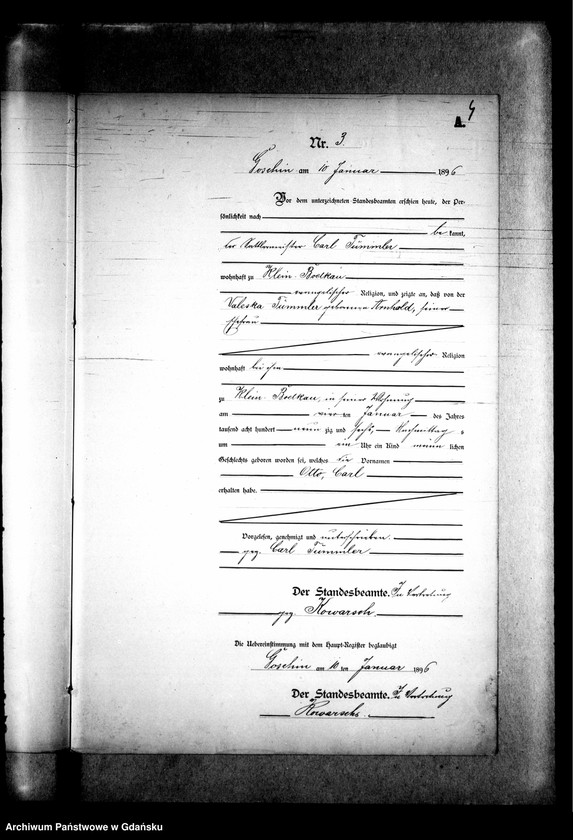 4
A.
Nr. 3.
Goschin am 10 Januar 1896
Vor dem unterzeichneten Standesbeamten erschien heute, der Per-
sönlichkeit nach
be kannt,
der Sattlermeister Carl Tümmler
wohnhaft zu Klein-Boelkau
evangelischer Religion, und zeigte an, daß von der
Valeska Tümmler geborenen Arnhold, seiner
Ehefrau
evangelischer Religion
wohnhaft bei ihm
zu Klein-Boelkau, in seiner Wohnung
am vier ten Januar des Jahres
tausend acht hundert neun zig und sechs, Nachmittag s
um ein Uhr ein Kind männ lichen
Geschlechts geboren worden sei, welches die Vornamen
Otto, Carl
erhalten habe.
Vorgelesen, genehmigt und unterschrieben.
gez. Carl Tümmler
Der Standesbeamte. In Vertretung
gez. Kowarsch
Die Uebereinstimmung mit dem Haupt-Register beglaubigt
Goschin am 10 ten Januar 1896
Der Standesbeamte. In Vertretung
Kowarsch.
Archiwum Państwowe w Gdańsku